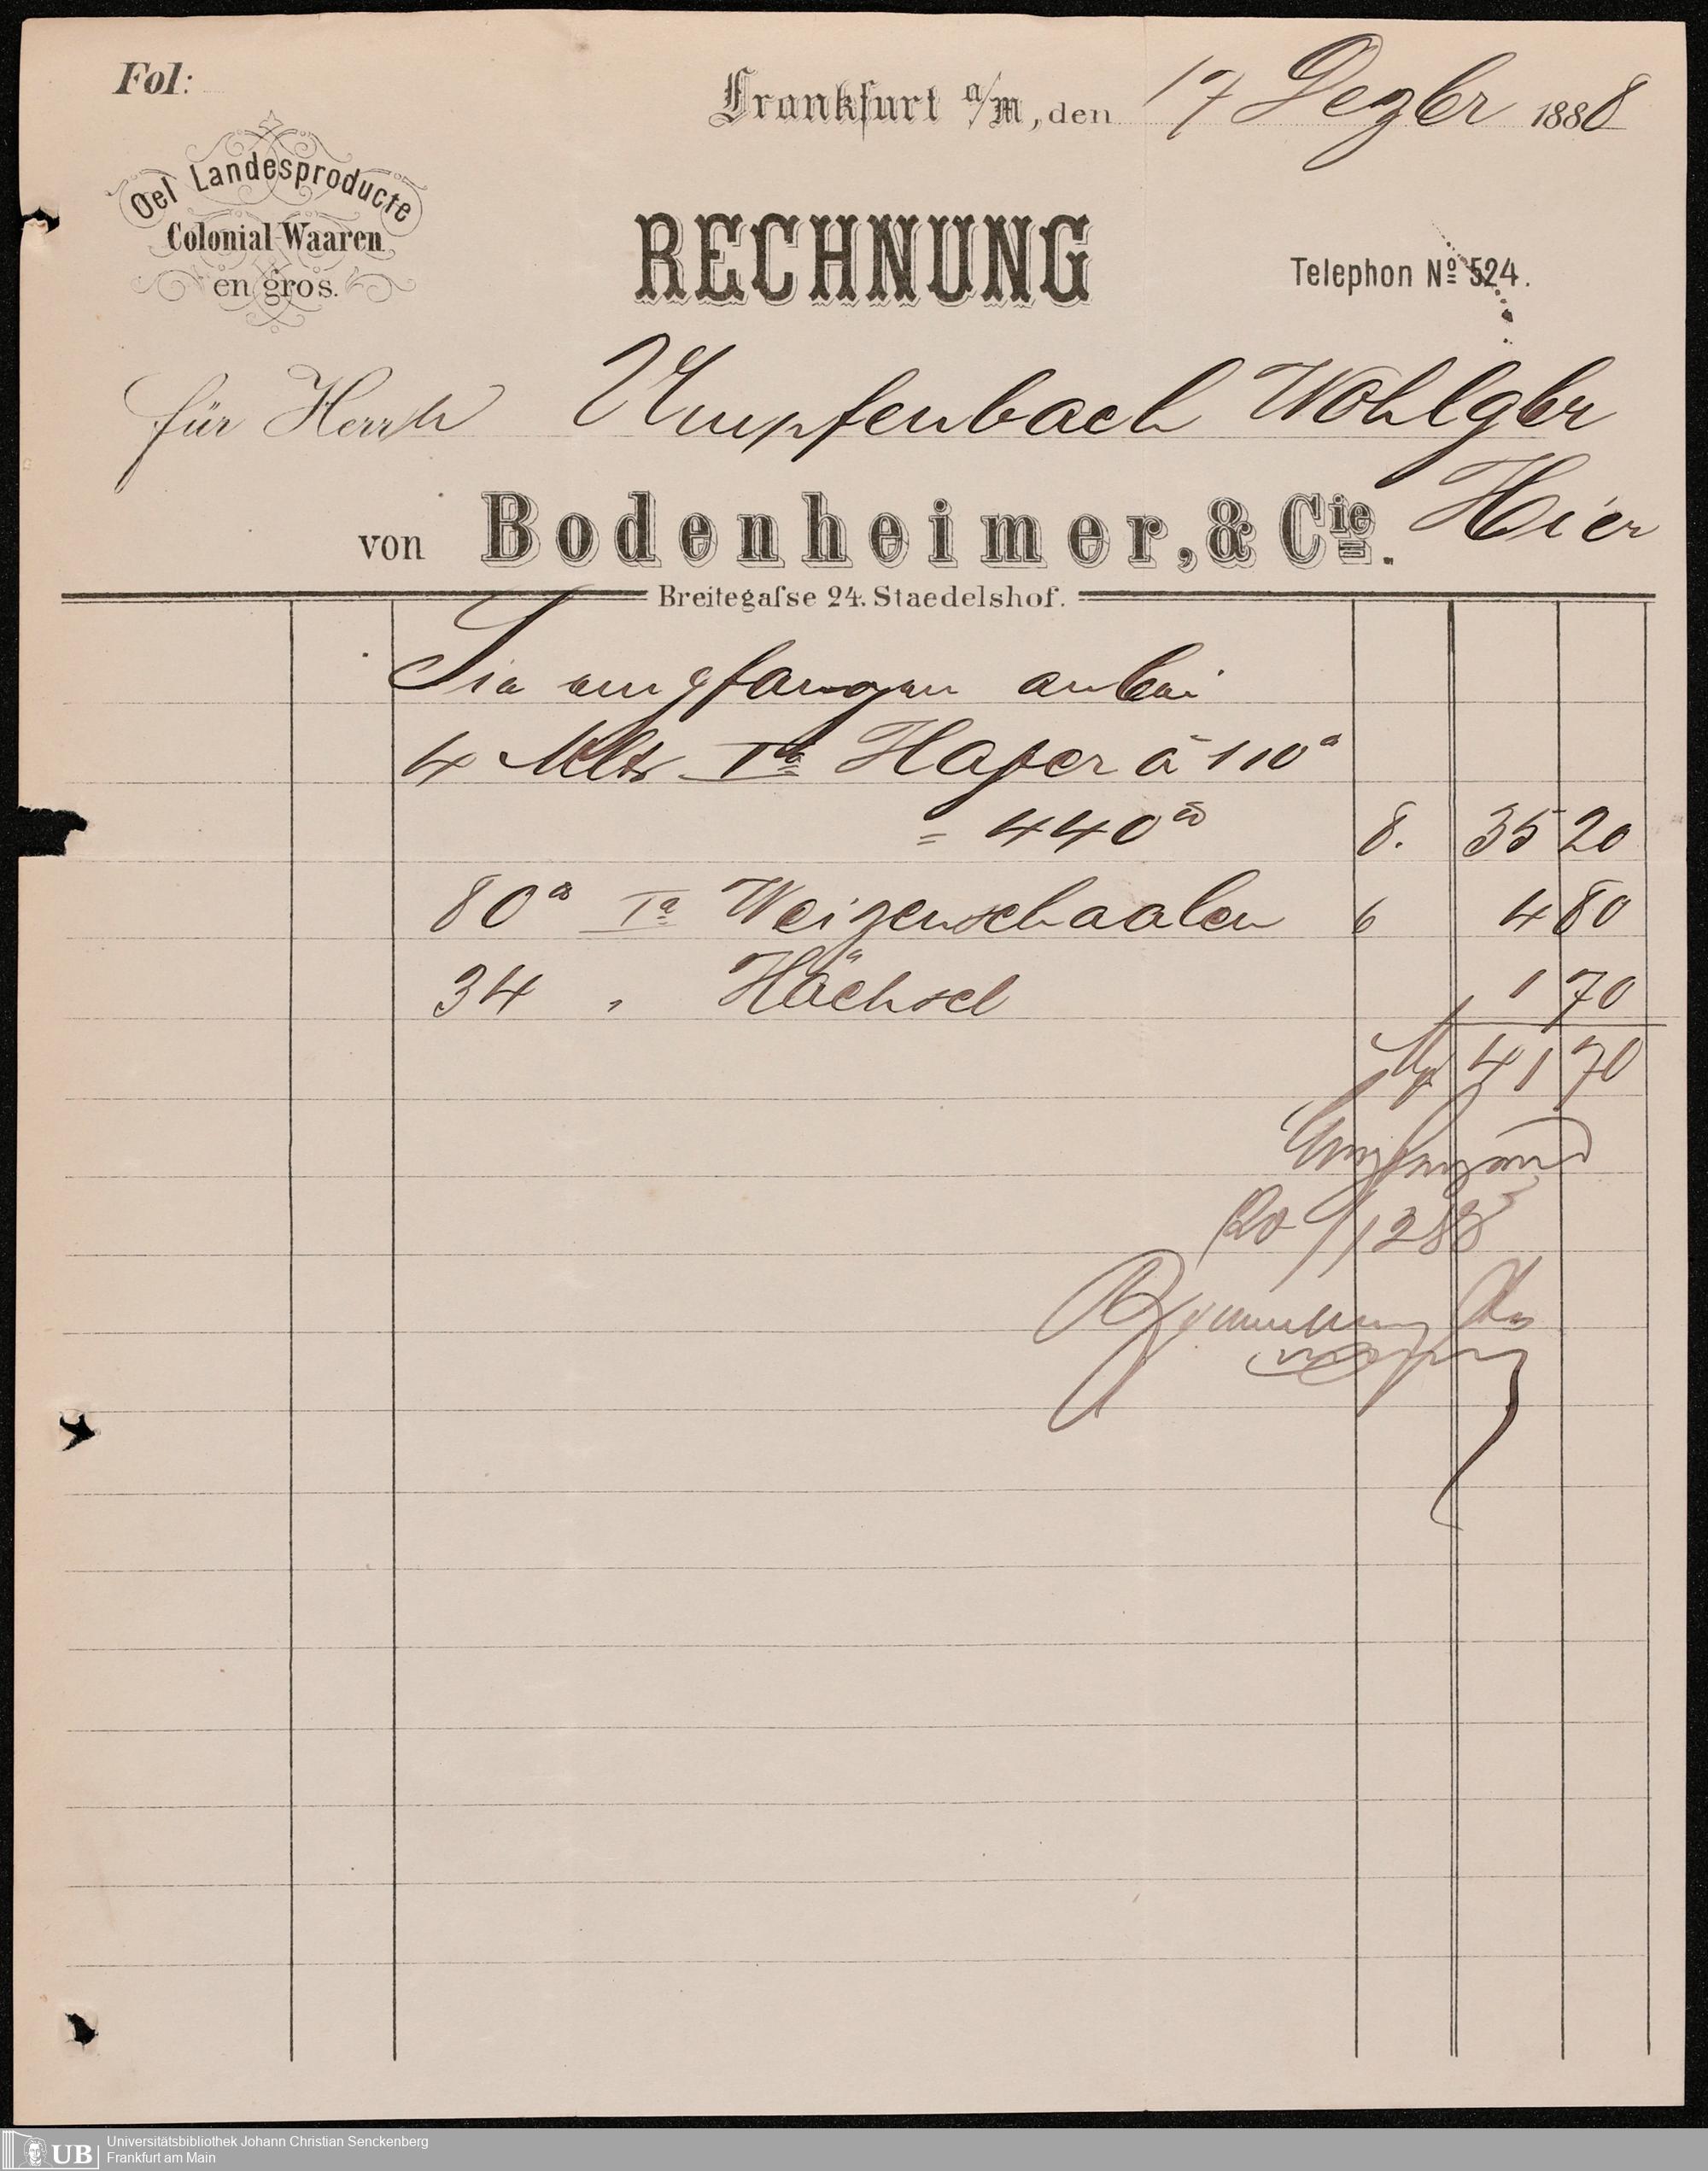 Fol:
Frankfurt a/M, den 17 Dezbr 1888
Oel Landesproducte
Colonial-Waaren
en gros.
RECHNUNG
Telephon No 524.
für Herrn Umpfenbach Wohlgbr
Hier
von Bodenheimer, & Cie.
Breitegasse 24. Staedelshof.
Sie empfangen anbei
4 Mltr Ia Hafer à 110 ℔
= 440 ℔ 8. 35 20
80 ℔ Ia Weizenschaalen 6 4 80
34 " Häcksel 1 70
M 41 70
Empfangen
20/12 88
Universitätsbibliothek Johann Christian Senckenberg
Frankfurt am Main
UB